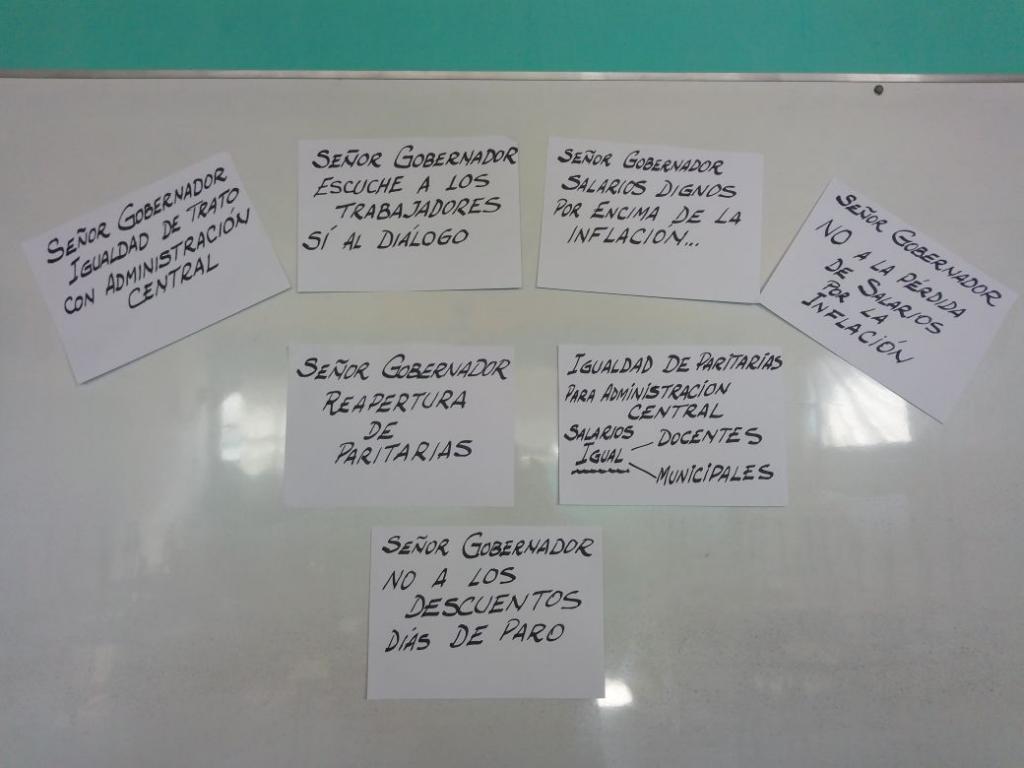 SEÑOR GOBERNADOR
IGUALDAD DE TRATO
CON ADMINISTRACIÓN
CENTRAL
SEÑOR GOBERNADOR
ESCUCHE A LOS
TRABAJADORES
SÍ AL DIÁLOGO
SEÑOR GOBERNADOR
SALARIOS DIGNOS
POR ENCIMA DE LA
INFLACION...
SEÑOR GOBERNADOR
NO A LA PERDIDA
DE SALARIOS
POR LA
INFLACIÓN
SEÑOR GOBERNADOR
REAPERTURA
DE
PARITARIAS
IGUALDAD DE PARITARIAS
PARA ADMINISTRACION
CENTRAL
SALARIOS
IGUAL
DOCENTES
MUNICIPALES
SEÑOR GOBERNADOR
NO A LOS
DESCUENTOS
DÍAS DE PARO